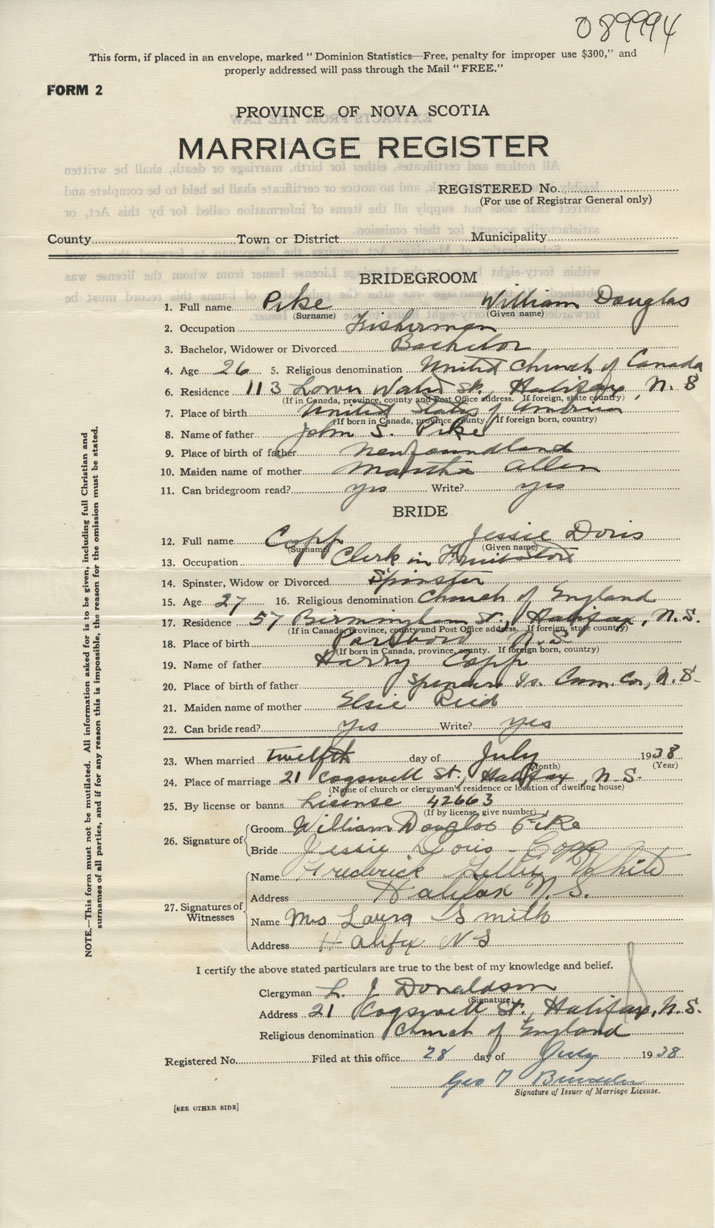 089994
This form, if placed in an envelope, marked "Dominion Statistics—Free, penalty for improper use $300," and
properly addressed will pass through the Mail "FREE."
FORM 2
PROVINCE OF NOVA SCOTIA
MARRIAGE REGISTER
REGISTERED No.
(For use of Registrar General only)
County Town or District Municipality
BRIDEGROOM
1. Full name Pike William Douglas
(Surname) (Given name)
2. Occupation Fisherman
3. Bachelor, Widower or Divorced Bachelor
4. Age 26 5. Religious denomination United Church of Canada
6. Residence 113 Lower Water St., Halifax, N. S
(If in Canada, province, county and Post Office address. If foreign, state country)
7. Place of birth United States of America
(If born in Canada, province, county. If foreign born, country)
8. Name of father John S. Pike
9. Place of birth of father Newfoundland
10. Maiden name of mother Martha Allen
11. Can bridegroom read? yes Write? yes
BRIDE
12. Full name Copp Jessie Doris
(Surname) (Given name)
13. Occupation Clerk in
14. Spinster, Widow or Divorced Spinster
15. Age 27 16. Religious denomination Church of England
17. Residence 57 Birmingham St., Halifax, N.S.
(If in Canada, province, county and Post Office address. If foreign, state country)
18. Place of birth N.S.
(If born in Canada, province, county. If foreign born, country)
19. Name of father Harry Copp
20. Place of birth of father Is. Co., N.S.
21. Maiden name of mother Elsie Reid
22. Can bride read? yes Write? yes
23. When married twelfth day of July 1938
(Month) (Year)
24. Place of marriage 21 Cogswell St., Halifax, N.S.
(Name of church or clergyman's residence or location of dwelling house)
25. By license or banns License 42663
(If by license, give number)
26. Signature of
Groom William Douglas Pike
Bride Jessie Doris Copp
27. Signatures of Witnesses
Name Frederick White
Address Halifax N.S.
Name Mrs Laura Smith
Address Halifx NS
I certify the above stated particulars are true to the best of my knowledge and belief.
Clergyman L. J. Donaldson
(Signature)
Address 21 Cogswell St., Halifax, N.S.
Religious denomination Church of England
Registered No. Filed at this office 28 day of July 1938
Geo
Signature of Issuer of Marriage License.
[SEE OTHER SIDE]
NOTE.—This form must not be mutilated. All information asked for is to be given, including full Christian and
surnames of all parties, and if for any reason this is impossible, the reason for the omission must be stated.